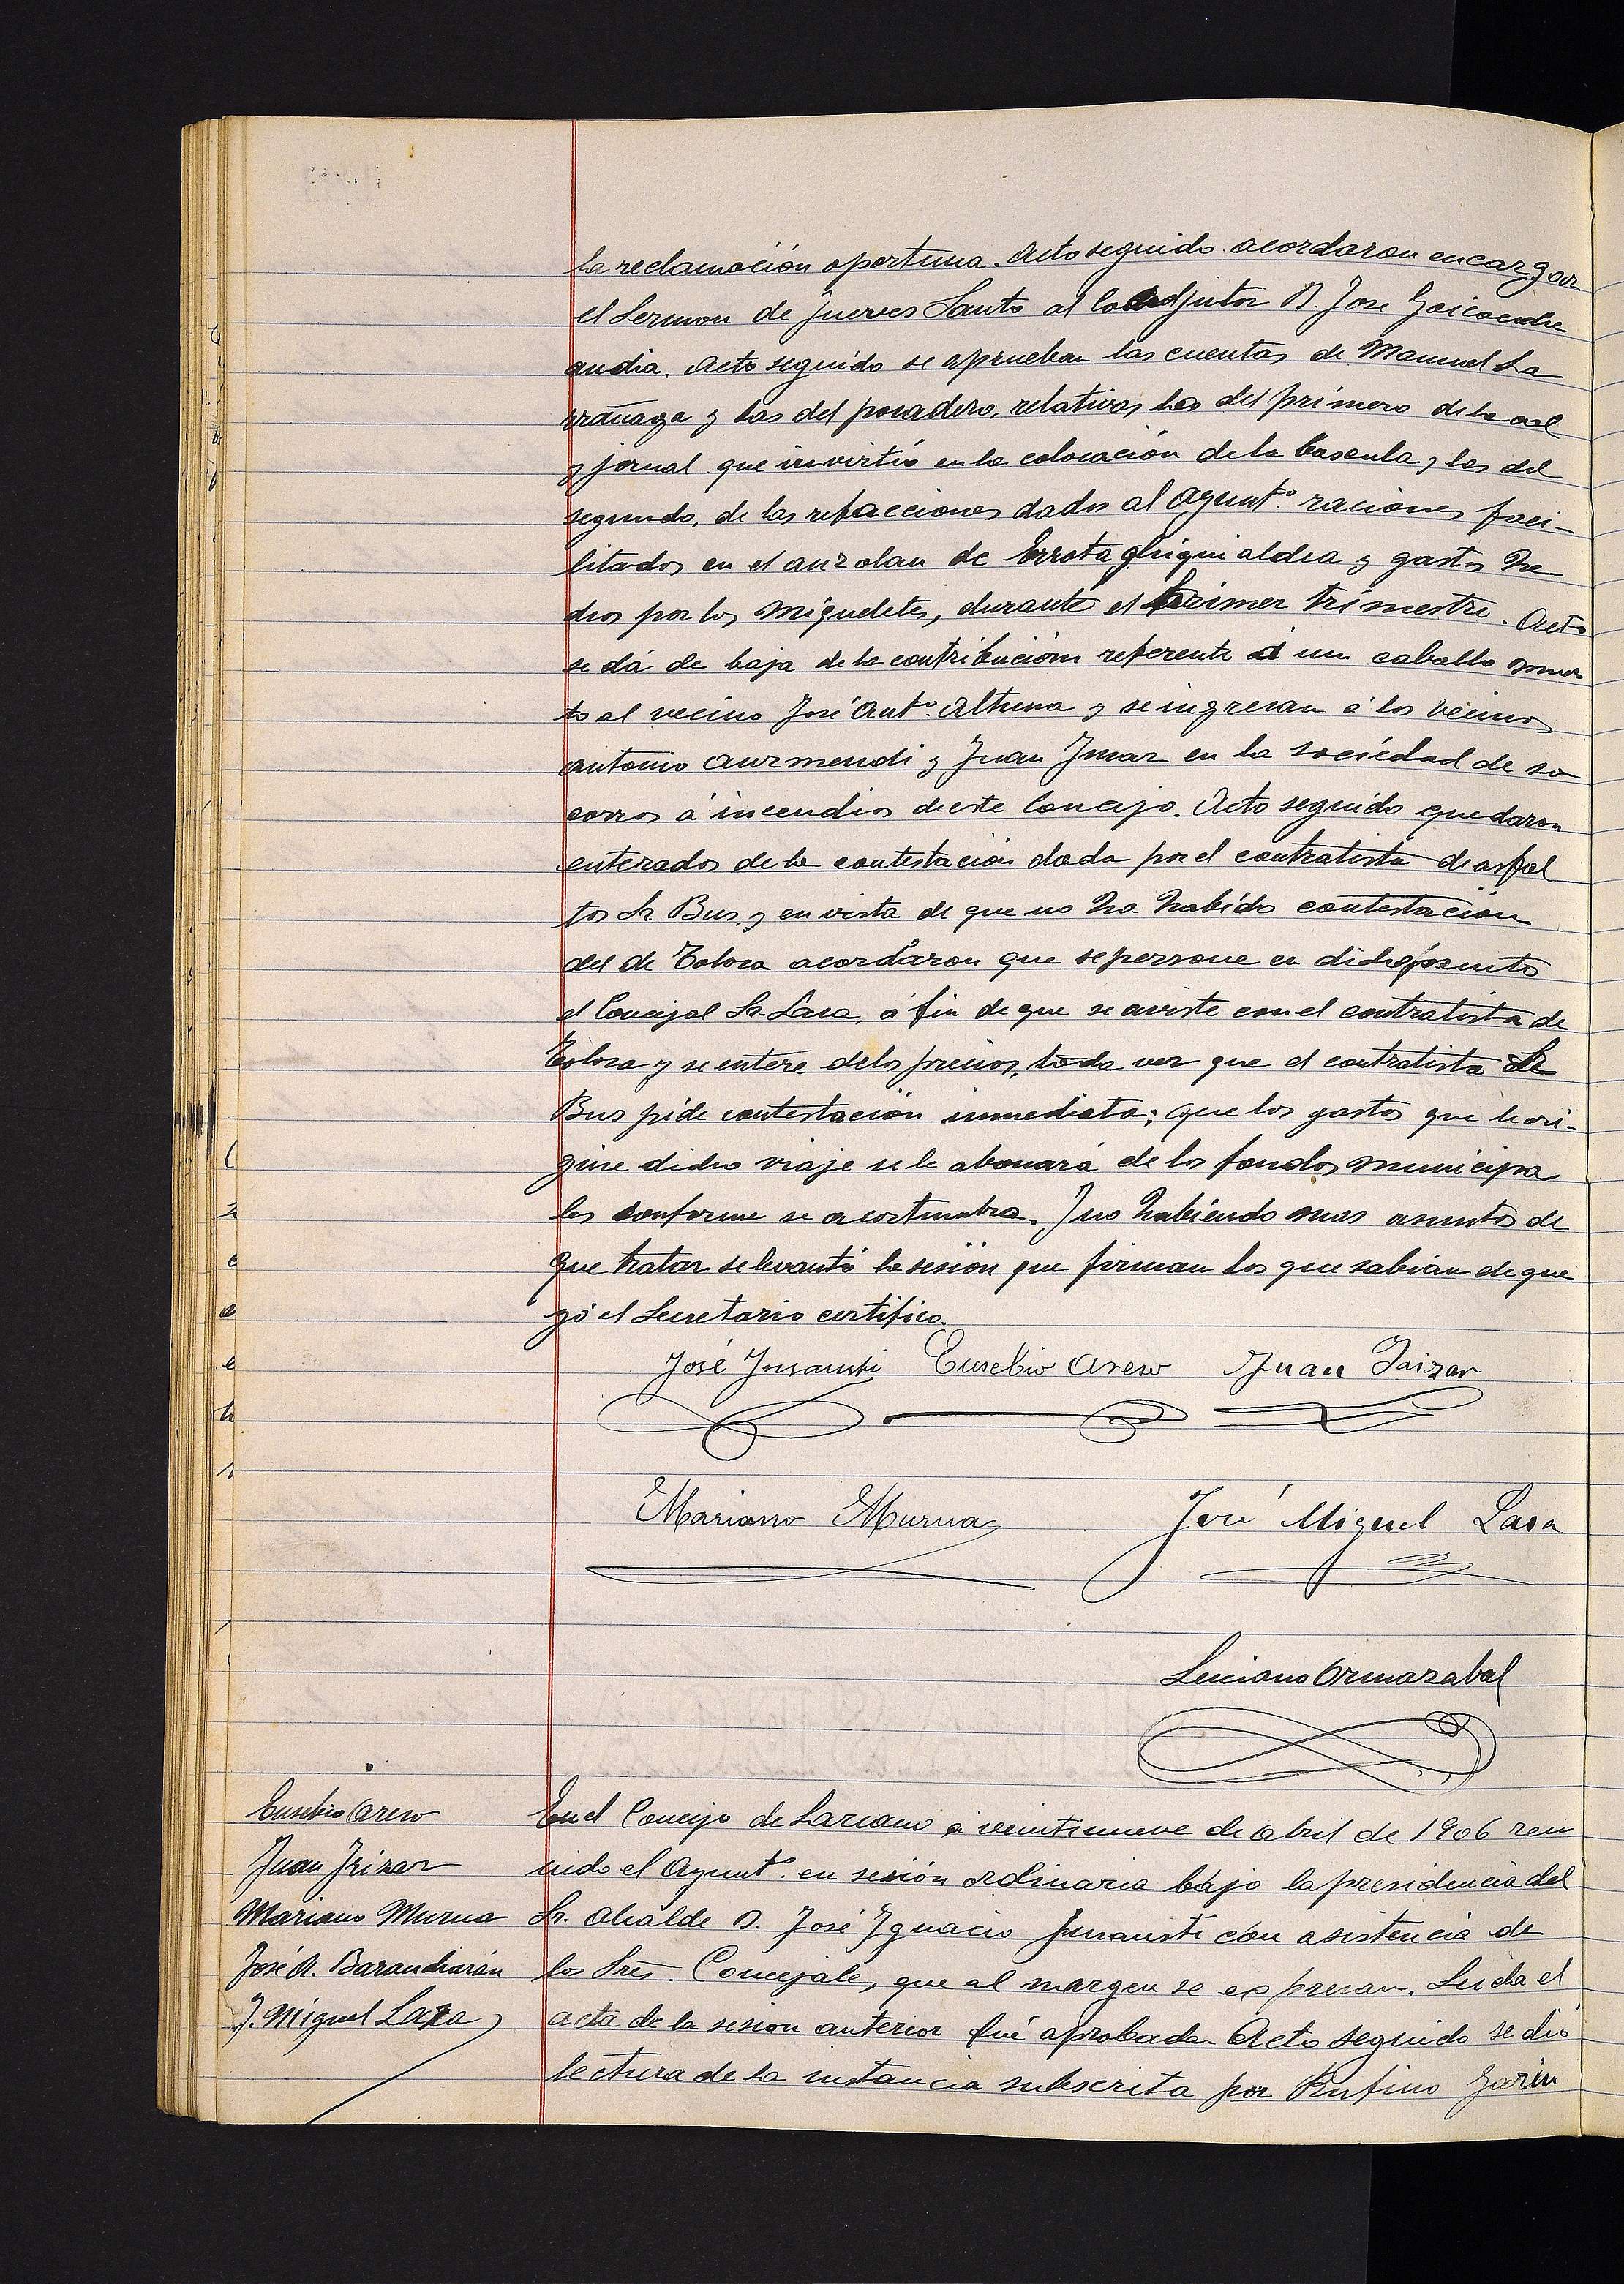 la reclamación oportuna. Acto seguido acordaron encargar
el Sermon de Jueves Santo al Coadjutor D. Jose Goicoeche
andia. Acto seguido se aprueban las cuentas de Manuel La
rrañaga y las del posadero, relativas las del primero de la cal
y jornal que invirtió en la colocación de la bascula, y las del
segundo, de las refacciones dadas al Ayuntº. raciones faci-
litados en el auzolan de Errota aldea y gastos he
chos por los Migueletes, durante el primer trimestre. Acto
se dá de baja de la contribución referente á un caballo muer
to al vecino José Antº. Altuna y se ingresan á los vecinos
Antonio Aurmendi y Juan en la sociedad de so
corros á incendios de este Concejo. Acto seguido quedaron
enterados de la contestación dada por el contratista de asfal
tos Sr. Bus, y en vista de que no ha habido contestación
del de Tolosa acordaron que se persone en dicho punto
el Concejal Sr. Lasa, á fin de que se aviste con el contratista de
Tolosa y se entere de los precios, toda vez que el contratista Sr
Bus pide contestación inmediata; que los gastos que le ori-
gine dicho viaje se le abonará de los fondos municipa
les conforme se acostumbra. Y no habiendo mas asuntos de
que tratar se levantó la sesión que firman los que sabian de que
yó el Secretario certifico.
José Insausti Eusebio Areso Juan Irizar
Mariano Murua José Miguel Lasa
Luciano Ormazabal
Eusebio Areso
Juan Irizar
Mariano Murua
José A. Barandiarán
J. Miguel Lasa
En el Concejo de Lazcano á veintinueve de abril de 1906 reu
nido el Ayuntº. en sesión ordinaria bajo la presidencia del
Sr. Alcalde D. José Ygnacio Insausti con asistencia de
los Sres. Concejales, que al margen se expresan. Leida el
acta de la sesion anterior fué aprobada. Acto seguido se dio
lectura de la instancia subscrita por Rufino Garin